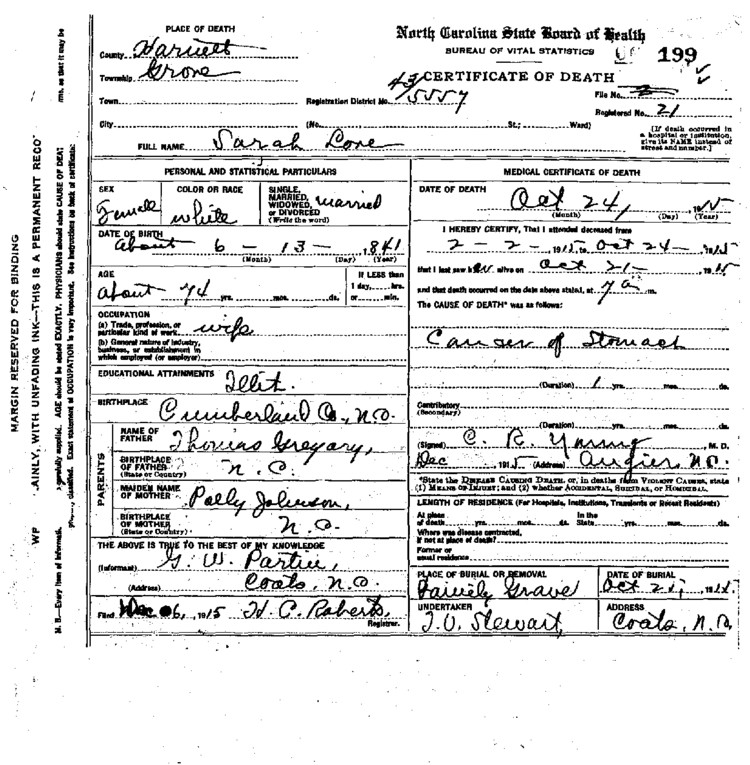 PLACE OF DEATH
County Harnett
Township Grove
Town
City
North Carolina State Board of Health
BUREAU OF VITAL STATISTICS
199
CERTIFICATE OF DEATH
Registration District No. 43 5557
File No.
Registered No. 21
(No. St.; Ward)
[If death occurred in a hospital or institution, give its NAME instead of street and number.]
FULL NAME Sarah Love
PERSONAL AND STATISTICAL PARTICULARS
SEX Female
COLOR OR RACE white
SINGLE, MARRIED, WIDOWED, or DIVORCED (Write the word) married
DATE OF BIRTH
about 6 - 13 - , 1841
(Month) (Day) (Year)
AGE
about 74 yrs. mos. ds.
If LESS than 1 day, hrs. or min.
OCCUPATION
(a) Trade, profession, or particular kind of work wife
(b) General nature of industry, business, or establishment in which employed (or employer)
EDUCATIONAL ATTAINMENTS Illit.
BIRTHPLACE Cumberland Co., N.C.
PARENTS
NAME OF FATHER Thomas Gregary,
BIRTHPLACE OF FATHER (State or Country) N.C.
MAIDEN NAME OF MOTHER Polly Johnson,
BIRTHPLACE OF MOTHER (State or Country) N.C.
THE ABOVE IS TRUE TO THE BEST OF MY KNOWLEDGE
(Informant) G. W. Partin,
(Address) Coats, N.C.
Filed Dec 6, 1915 H. C. Roberts, Registrar.
MEDICAL CERTIFICATE OF DEATH
DATE OF DEATH Oct 24, 191
(Month) (Day) (Year)
I HEREBY CERTIFY, That I attended deceased from
2 - 2 - 1915 to Oct 24 - 1915
that I last saw her alive on Oct 21 - 1915
and that death occurred on the date above stated, at 7 a m.
The CAUSE OF DEATH* was as follows:
Cancer of Stomach
(Duration) 1 yrs. mos. ds.
Contributory (Secondary)
(Duration) yrs. mos. ds.
(Signed) C. R. Young M. D.
Dec 1915 (Address) Angier N.C.
*State the DISEASE CAUSING DEATH, or, in deaths from VIOLENT CAUSES, state (1) MEANS OF INJURY; and (2) whether ACCIDENTAL, SUICIDAL, or HOMICIDAL.
LENGTH OF RESIDENCE (For Hospitals, Institutions, Transients or Recent Residents)
At place of death yrs. mos. ds. In the State yrs. mos. ds.
Where was disease contracted, if not at place of death?
Former or usual residence
PLACE OF BURIAL OR REMOVAL Family Grave
DATE OF BURIAL Oct 25, 1915
UNDERTAKER J. V. Stewart,
ADDRESS Coats, N.C.
MARGIN RESERVED FOR BINDING
AINLY, WITH UNFADING INK—THIS IS A PERMANENT RECO
N. B.—Every item of informati
carefully supplied. AGE should be stated EXACTLY. PHYSICIANS should state CAUSE OF DEAT
rms, so that it may be
classified. Exact statement of OCCUPATION is very important. See instructions on back of certificate.